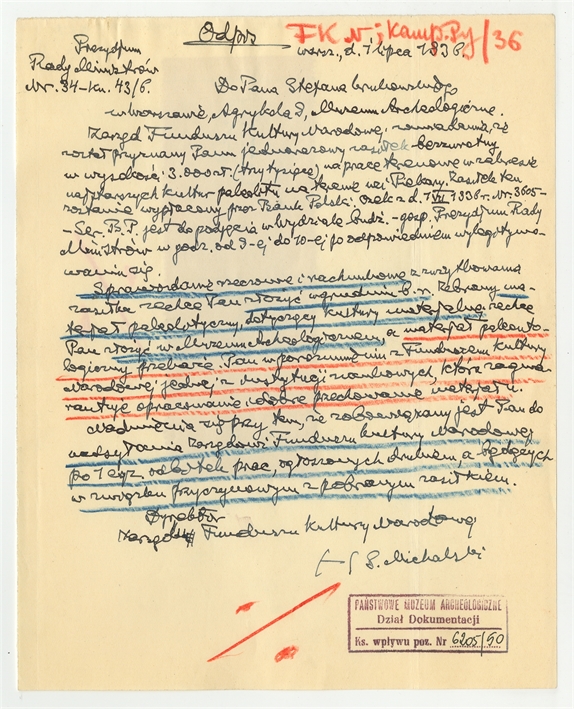 Odpis
FK N i Kamp. Py/36
Prezydium
Rady Ministrów
Nr. 34-kn. 43/6.
warsz., d. 1 lipca 1936.
Do Pana Stefana Krukowskiego
w Warszawie, Agrykola 9, Muzeum Archeologiczne.
Zarząd Funduszu Kultury Narodowej zawiadamia, że
został przyznany Panu jednorazowy zasiłek bezzwrotny
w wysokości 3.000 zł (trzy tysiące) na prace terenowe w zakresie
najstarszych kultur paleolitu na terenie wsi Piekary. Zasiłek ten
zostanie wypłacony przez Bank Polski, czek z d. 1 VII 1936 r. Nr. 3605-
- Ser. B.P. jest do podjęcia w Wydziale Budż.-gosp. Prezydium Rady
Ministrów w godz. od 9-ej do 10-ej po odpowiednim wylegitymo-
waniu się.
Sprawozdanie rzeczowe i rachunkowe z zużytkowania
zasiłku zechce Pan złożyć w grudniu b.r. Zebrany ma-
terjał paleolityczny, dotyczący kultury materjalnej zechce
Pan złożyć w Muzeum Archeologicznem, a materjał paleonto-
logiczny przekaże Pan w porozumieniu z Funduszem Kultury
Narodowej, jednej z instytucji naukowych, która zagwa-
rantuje opracowanie i dobre przechowanie materjału.
Nadmienia się przy tem, że zobowiązany jest Pan do
nadsyłania Zarządowi Funduszu Kultury Narodowej
po 1 egz. odbitek prac, ogłoszonych drukiem, a będących
w związku przyczynowym z pobranym zasiłkiem.
Dyrektor
Zarządu Funduszu Kultury Narodowej
(-) S. Michalski
PAŃSTWOWE MUZEUM ARCHEOLOGICZNE
Dział Dokumentacji
Ks. wpływu poz. Nr 6205/90